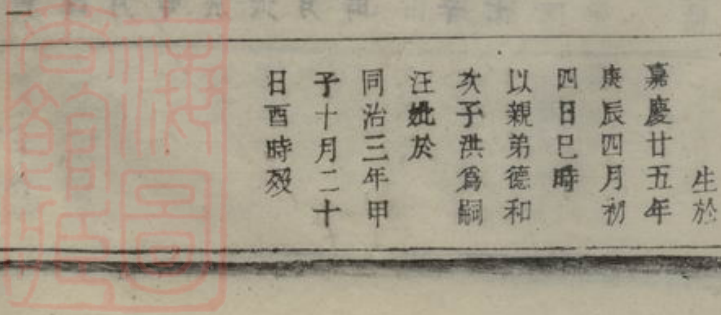 生於
嘉慶廿五年
庚辰四月初
四日巳時
以親弟德和
次子洪爲嗣
汪妣於
同治三年甲
子十月二十
日酉時歿